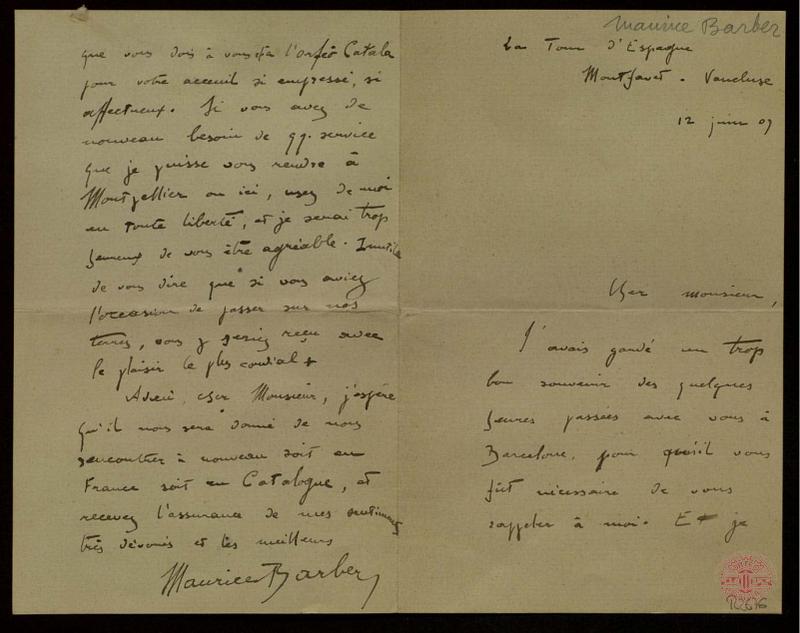 Maurice Barber
La Tour d'Espagne
Montfavet. Vaucluse
12 juin 09
Cher monsieur,
J'avais gardé un trop
bon souvenir des quelques
heures passées avec vous à
Barcelone, pour qu'il vous
fût nécessaire de vous
rappeler à moi. Et je
que vous dois à vous & à l'orfeó Catala
pour votre acceuil si empressé, si
affectueux. Si vous avez de
nouveau besoin de qq. service
que je puisse vous rendre à
Montpellier ou ici, usez de moi
en toute liberté, et je serai trop
heureux de vous être agréable. Inutile
de vous dire que si vous aviez
l'occasion de passer sur nos
terres, vous y seriez reçu avec
le plaisir le plus cordial.
Adieu, cher Monsieur, j'espère
qu'il nous sera donné de nous
rencontrer à nouveau soit en
France soit en Catalogue, et
recevez l'assurance de mes sentiments
très dévoués et les meilleurs
Maurice Barber